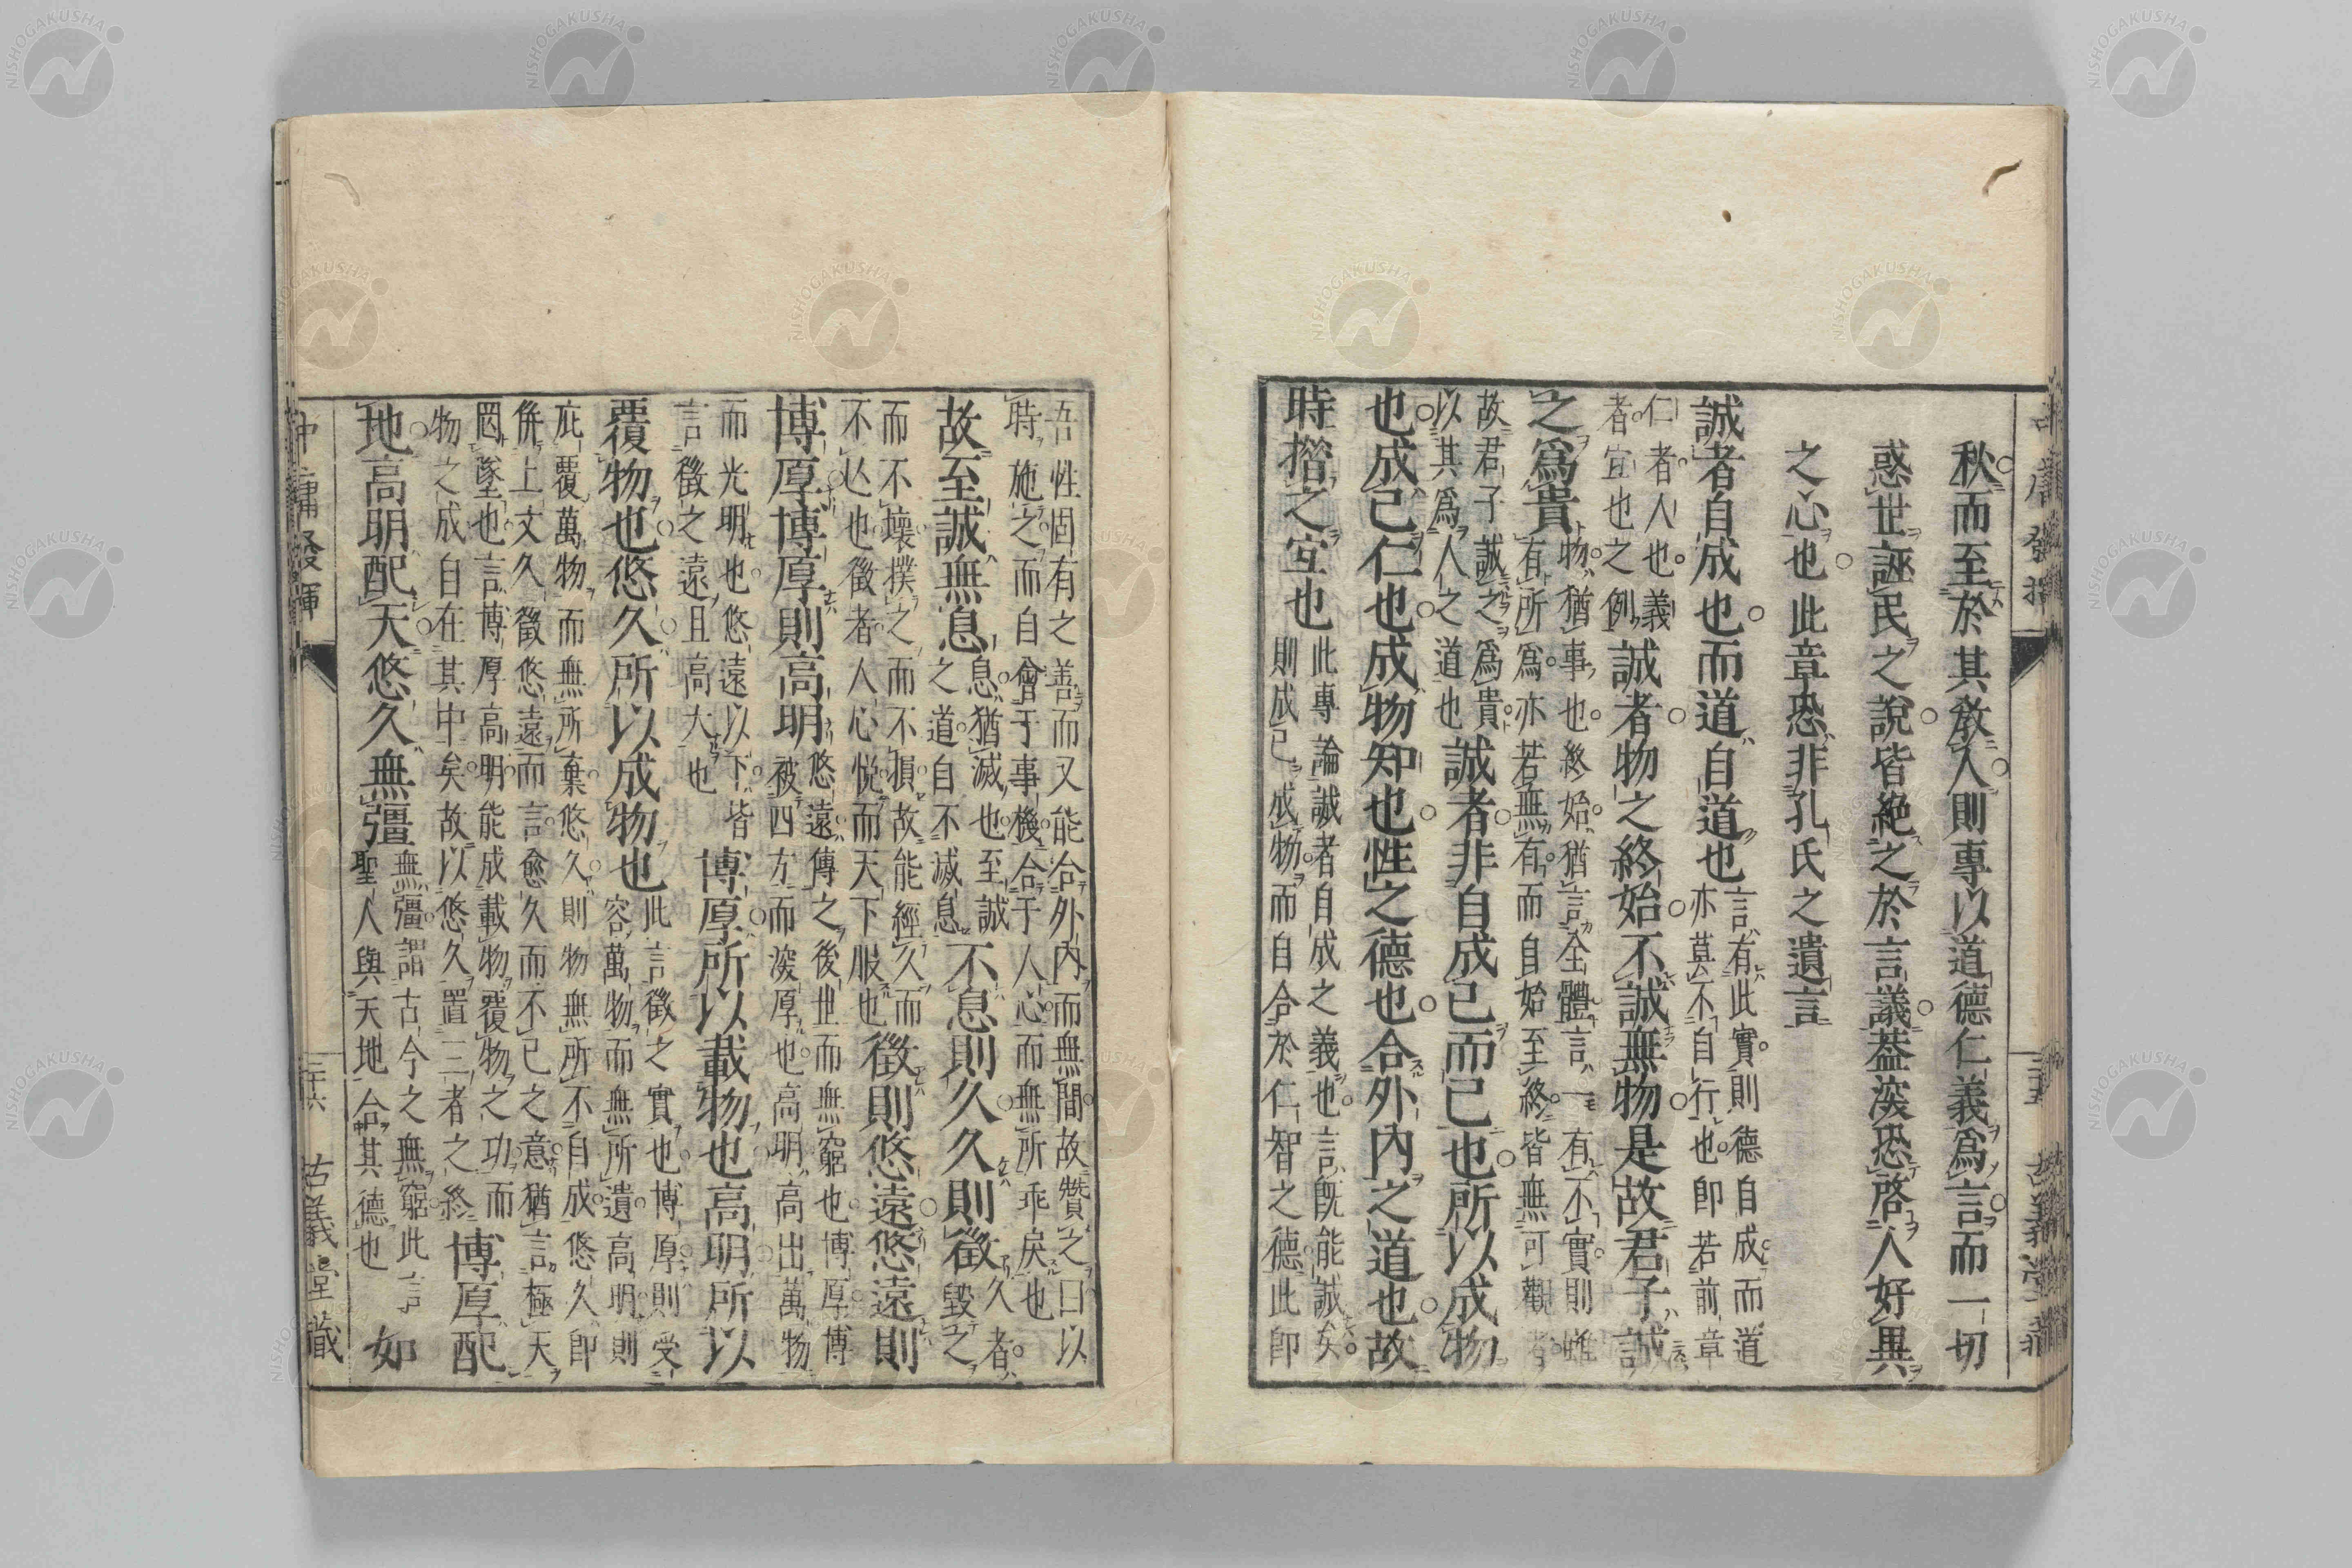 中庸發揮
秋而至於其教人則專以道德仁義爲言而一切
惑世誣民之說皆絕之於言議蓋深恐啓人好異
之心也此章恐非孔氏之遺言
誠者自成也而道自道也
言有此實則德自成而道
亦莫不自行也卽若前章
仁者人也義
者宜也之例
誠者物之終始不誠無物是故君子誠
之爲貴
物猶事也終始猶言全體言一有不實則雖
有所爲亦若無有而自始至終皆無可觀者
故君子誠之爲貴
以其爲人之道也
誠者非自成己而已也所以成物
也成己仁也成物知也性之德也合外內之道也故
時措之宜也
此專論誠者自成之義也言旣能誠矣
則成己成物而自合於仁智之德此卽
吾性固有之善而又能合外內而無間故贊之曰以
時施之而自會于事機合于人心而無所乖戾也
故至誠無息
息猶滅也至誠
之道自不滅息
不息則久久則徵
久者
毀之
而不壞撲之而不損故能經久而
不亾也徵者人心悅而天下服也
徵則悠遠悠遠則
博厚博厚則高明
悠遠傳之後世而無窮也博厚博
被四方而深厚也高明高出萬物
而光明也悠遠以下皆
言徵之遠且高大也
博厚所以載物也高明所以
覆物也悠久所以成物也
此言徵之實也博厚則受
容萬物而無所遺高明則
庇覆萬物而無所棄悠久則物無所不自成悠久卽
倂上文久徵悠遠而言愈久而不已之意猶言極天
罔墜也言博厚高明能成載物覆物之功而
物之成自在其中矣故以悠久置三者之終
博厚配
地高明配天悠久無彊
無彊謂古今之無窮此言
聖人與天地合其德也
如
中庸發揮 三十六 古義堂藏